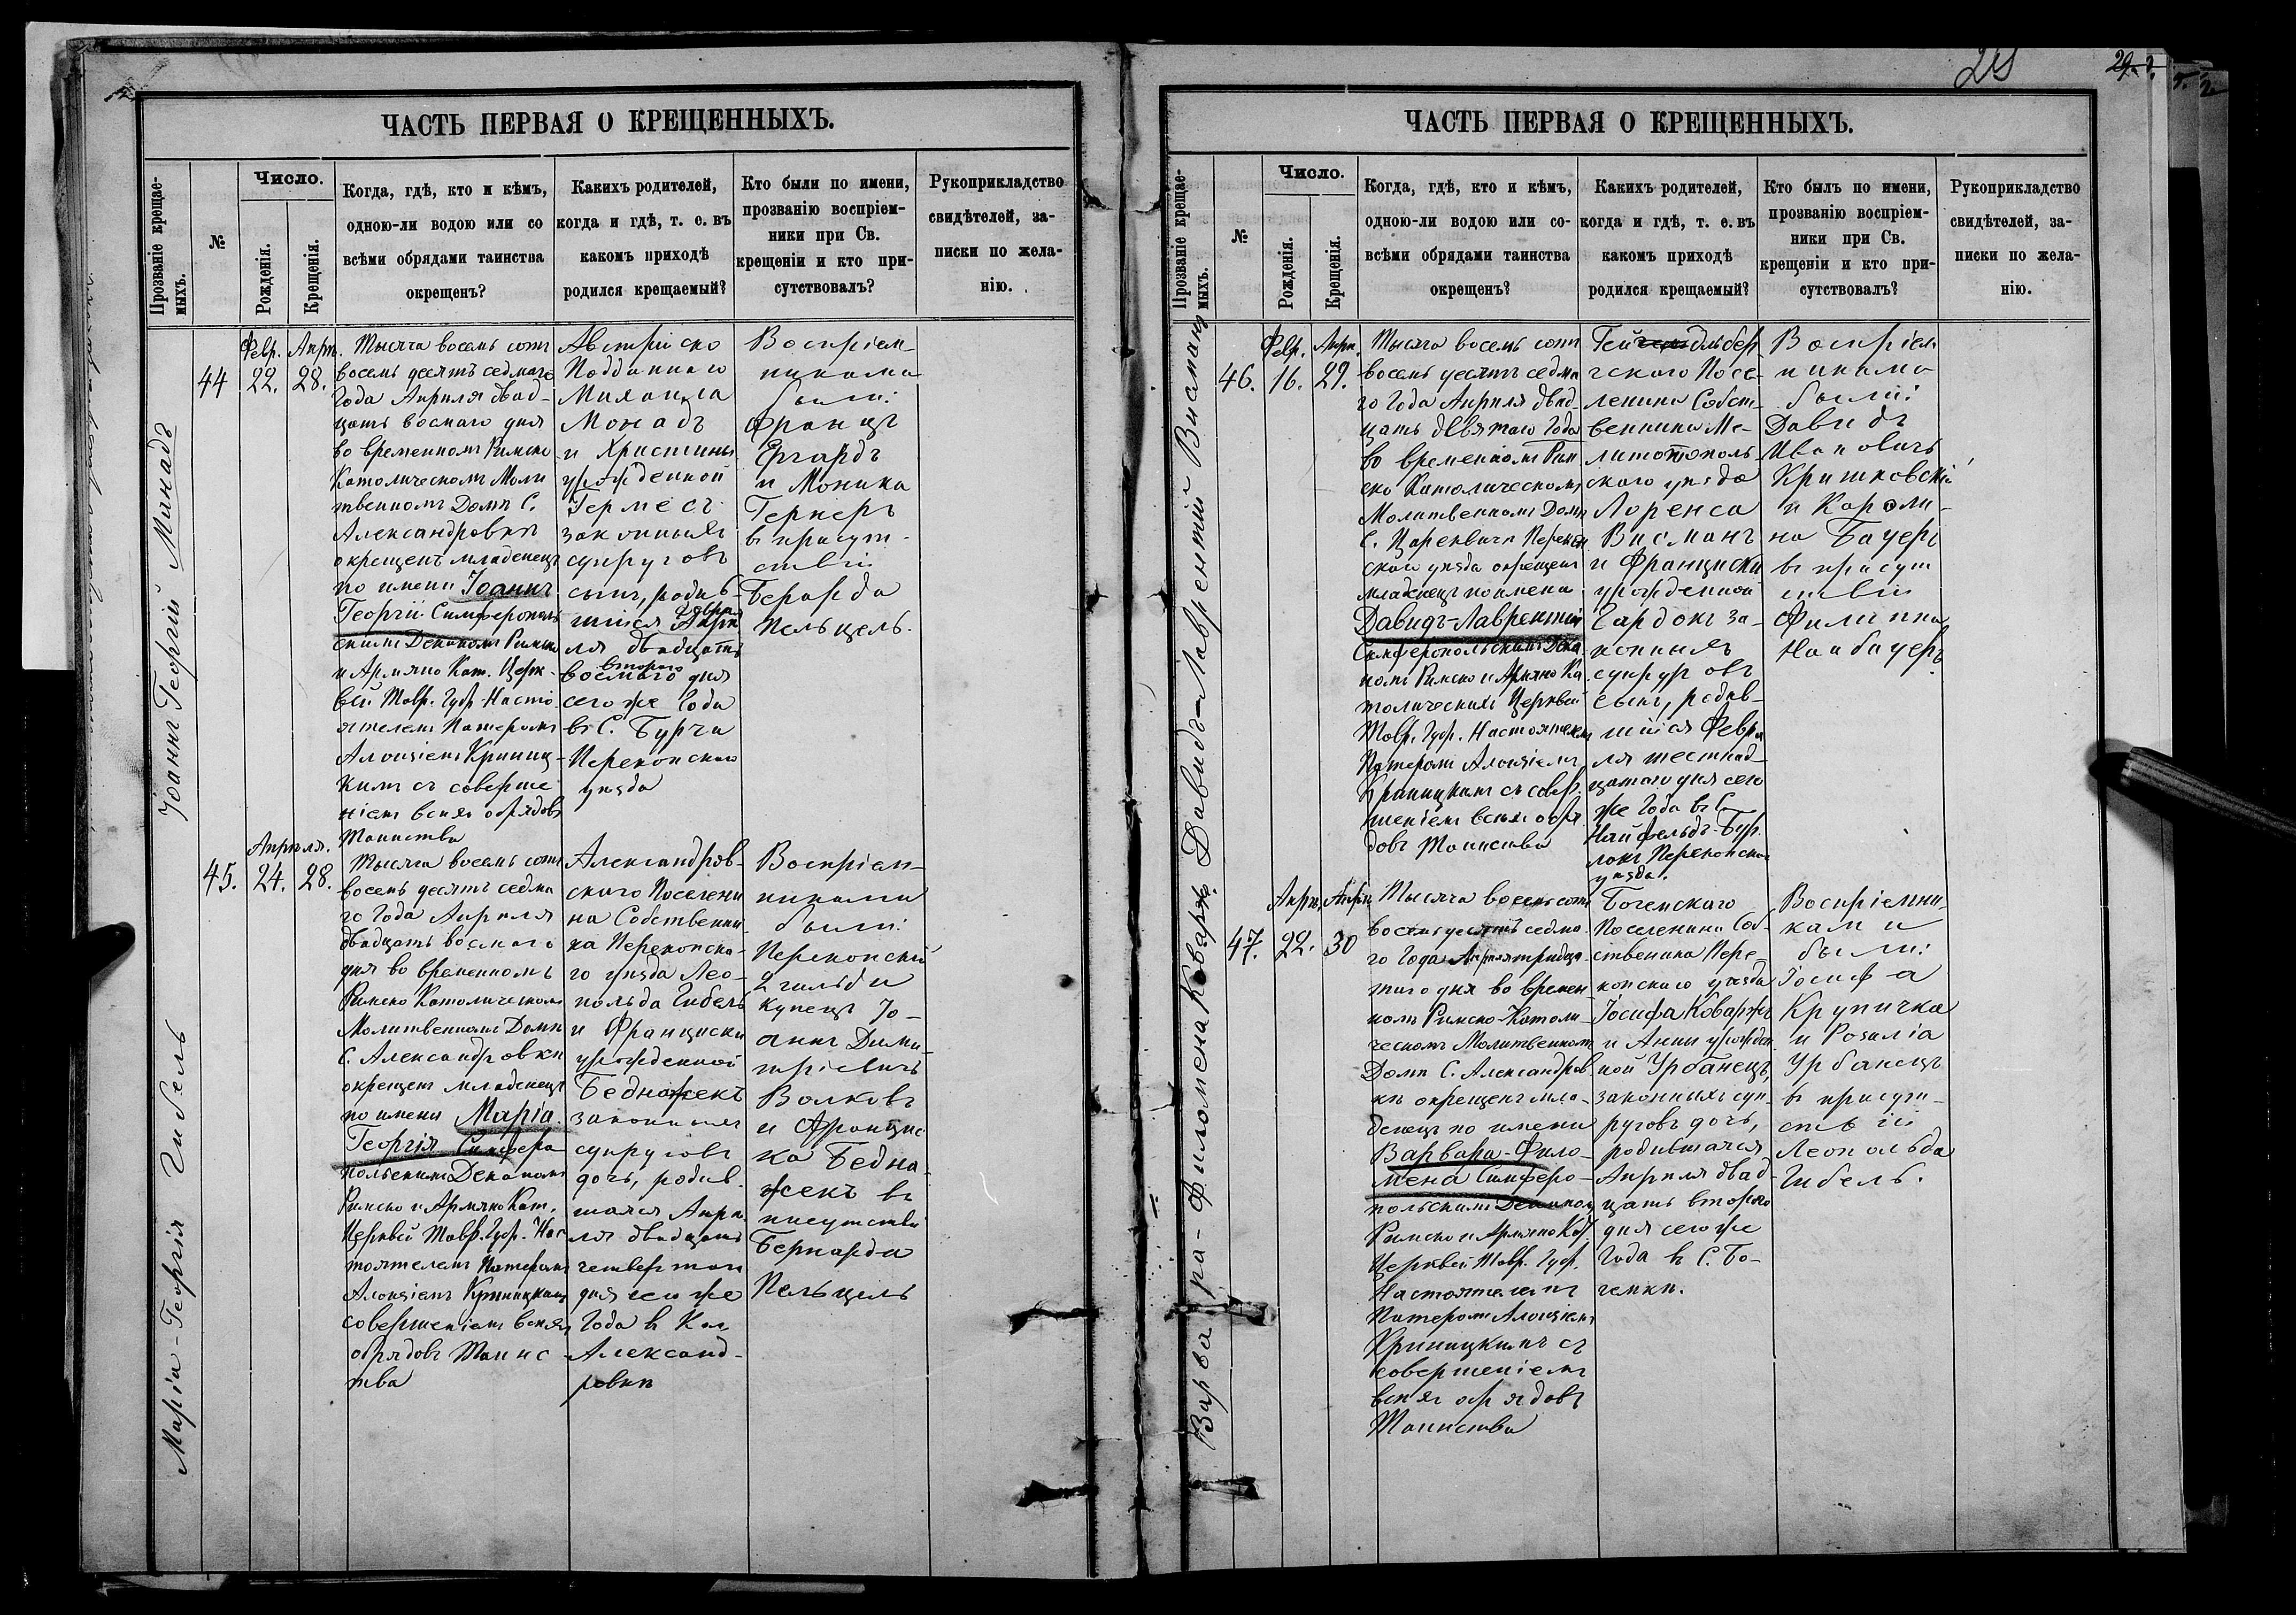 ЧАСТЬ ПЕРВАЯ О КРЕЩЕННЫХЪ.
Прозваніе крещае-
мыхъ.
№
Число.
Рожденія.
Крещенія.
Когда, гдѣ, кто и кѣмъ,
одною-ли водою или со
всѣми обрядами таинства
окрещенъ?
Какихъ родителей,
когда и гдѣ, т. е. въ
какомъ приходѣ
родился крещаемый?
Кто были по имени,
прозванію воспріем-
ники при Св.
крещеніи и кто при-
сутствовалъ?
Рукоприкладство
свидѣтелей, за-
писки по жела-
нію.
Іоаннъ Георгій Манадъ
44
Февр. 22.
Апрѣ. 28.
Тысяча восемь сотъ
восемь десятъ седмаго
Года Апрѣля двад-
цать восмаго дня
во временномъ Римско
Католическомъ Моли
твенномъ Домѣ С.
Александровкѣ
окрещенъ младенецъ
по имени Іоаннъ
Георгій Симферополь
скимъ Деканомъ Римско
и Армяно Кат. Церк-
вей Тавр. Губ. Насто
ятелемъ Патеромъ
Алоизіемъ Криниц-
кимъ съ соверше
ніемъ всѣхъ обрядовъ
Таинства
Австрійско
Подданнаго
Михаила
Монадъ
и Христины
урожденной
Гермесъ
законныхъ
супруговъ
сынъ, родив-
шійся Апрѣ
Февра
ля двадцать
втораго
восмаго дня
сего же Года
въ С. Бурча
Перекопскаго
уѣзда
Воспріем-
никами
были:
Францъ
Ергардъ
и Моника
Гернеръ
въ присут-
ствіи
Берарда
Пельцель.
Марія-Георгія Гибель
45.
Апрѣля.
24.
28.
Тысяча восемь сотъ
восемь десятъ седма
го Года Апрѣля
двадцать восмаго
дня во временномъ
Римско Католическомъ
Молитвенномъ Домѣ
С. Александровкѣ
окрещенъ младенецъ
по имени Марія
Георгія Симферо-
польскимъ Деканомъ
Римско и Армяно Кат.
Церквей Тавр. Губ. Нас
тоятелемъ Патеромъ
Алоизіемъ Криницкимъ
совершеніемъ всѣхъ
обрядовъ Таинс
тва
Александров-
скаго Поселени
на Собственни
ка Перекопска-
го уѣзда Лео-
польда Гибель
и Франциски
урожденной
Беднажекъ
законныхъ
супруговъ
дочь, родив-
шаяся Апрѣ-
ля двадцать
четвертаго
дня сего же
Года въ Кол.
Александ-
ровкѣ
Воспріем-
никами
были:
Перекопскій
2 гильди
купецъ Іо-
аннъ Дими-
тріевичъ
Волковъ
и Францис
ка Бедна-
жекъ въ
присутствіи
Бернарда
Пельцель
29.
ЧАСТЬ ПЕРВАЯ О КРЕЩЕННЫХЪ.
Прозваніе крещае-
мыхъ.
№
Число.
Рожденія.
Крещенія.
Когда, гдѣ, кто и кѣмъ,
одною-ли водою или со-
всѣми обрядами таинства
окрещенъ?
Какихъ родителей,
когда и гдѣ, т. е. въ
какомъ приходѣ
родился крещаемый?
Кто былъ по имени,
прозванію воспріем-
ники при Св.
крещеніи и кто при-
сутствовалъ?
Рукоприкладство
свидѣтелей, за-
писки по жела-
нію.
Давидъ-Лаврентій Висманъ
46.
Февр. 16.
Апрѣ. 29.
Тысяча восемь сотъ
восемь десятъ седма
го Года Апрѣля двад-
цать девятаго Года
во временномъ Рим
ско Католическомъ
Молитвенномъ Домѣ
С. Царевичи Перекоп
скаго уѣзда окрещенъ
младенецъ по имени
Давидъ-Лаврентій
Симферопольскимъ Дека
номъ Римско и Армяно Ка
толическихъ Церквей
Тавр. Губ. Настоятелемъ
Патеромъ Алоизіемъ
Криницкимъ съ совер-
шеніемъ всѣхъ обря
довъ Таинства
Гейдельбер
гскаго Посе-
ленина Собст-
венника Ме-
литополь-
скаго уѣзда
Лоренса
Висманъ
и Франциски
урожденной
Гардокъ за-
конныхъ
супруговъ
сынъ, родив-
шійся Февра
ля шестнад-
цатаго дня сего
же Года въ С.
Найфельдъ-Бур.
локъ Перекопскаго
уѣзда.
Воспріем
никами
были:
Давидъ
Ивановичъ
Кришковскій
и Кароли-
на Бауеръ
въ присут
ствіи
Филиппа
Наибауеръ
Варвара-Филомена Коваржъ.
47.
Апрѣ. 22.
Апрѣ. 30
Тысяча восемь сотъ
восемь десятъ седма-
го Года Апрѣля тридца-
таго дня во времен
номъ Римско-Католи-
ческомъ Молитвенномъ
Домѣ С. Александров
кѣ окрещенъ мла-
денецъ по имени
Варвара-Фило-
мена Симферо-
польскимъ Деканомъ
Римско и Армяно Кат.
Церквей Тавр. Губ.
Настоятелемъ
Патеромъ Алоизіемъ
Криницкимъ съ
совершеніемъ
всѣхъ обрядовъ
Таинства
Богемскаго
Поселенина Соб-
ственника Пере-
копскаго уѣзда
Іосифа Коваржъ
и Анны урожден
ной Урбанецъ,
законныхъ суп-
руговъ дочь,
родившаяся
Апрѣля двад-
цать втораго
дня сего же
Года въ С. Бо-
гемкѣ.
Воспріемни-
ками
были:
Іосифа
Крупичка
и Розалія
Урбанецъ
въ присут-
ствіи
Леопольда
Гибель.